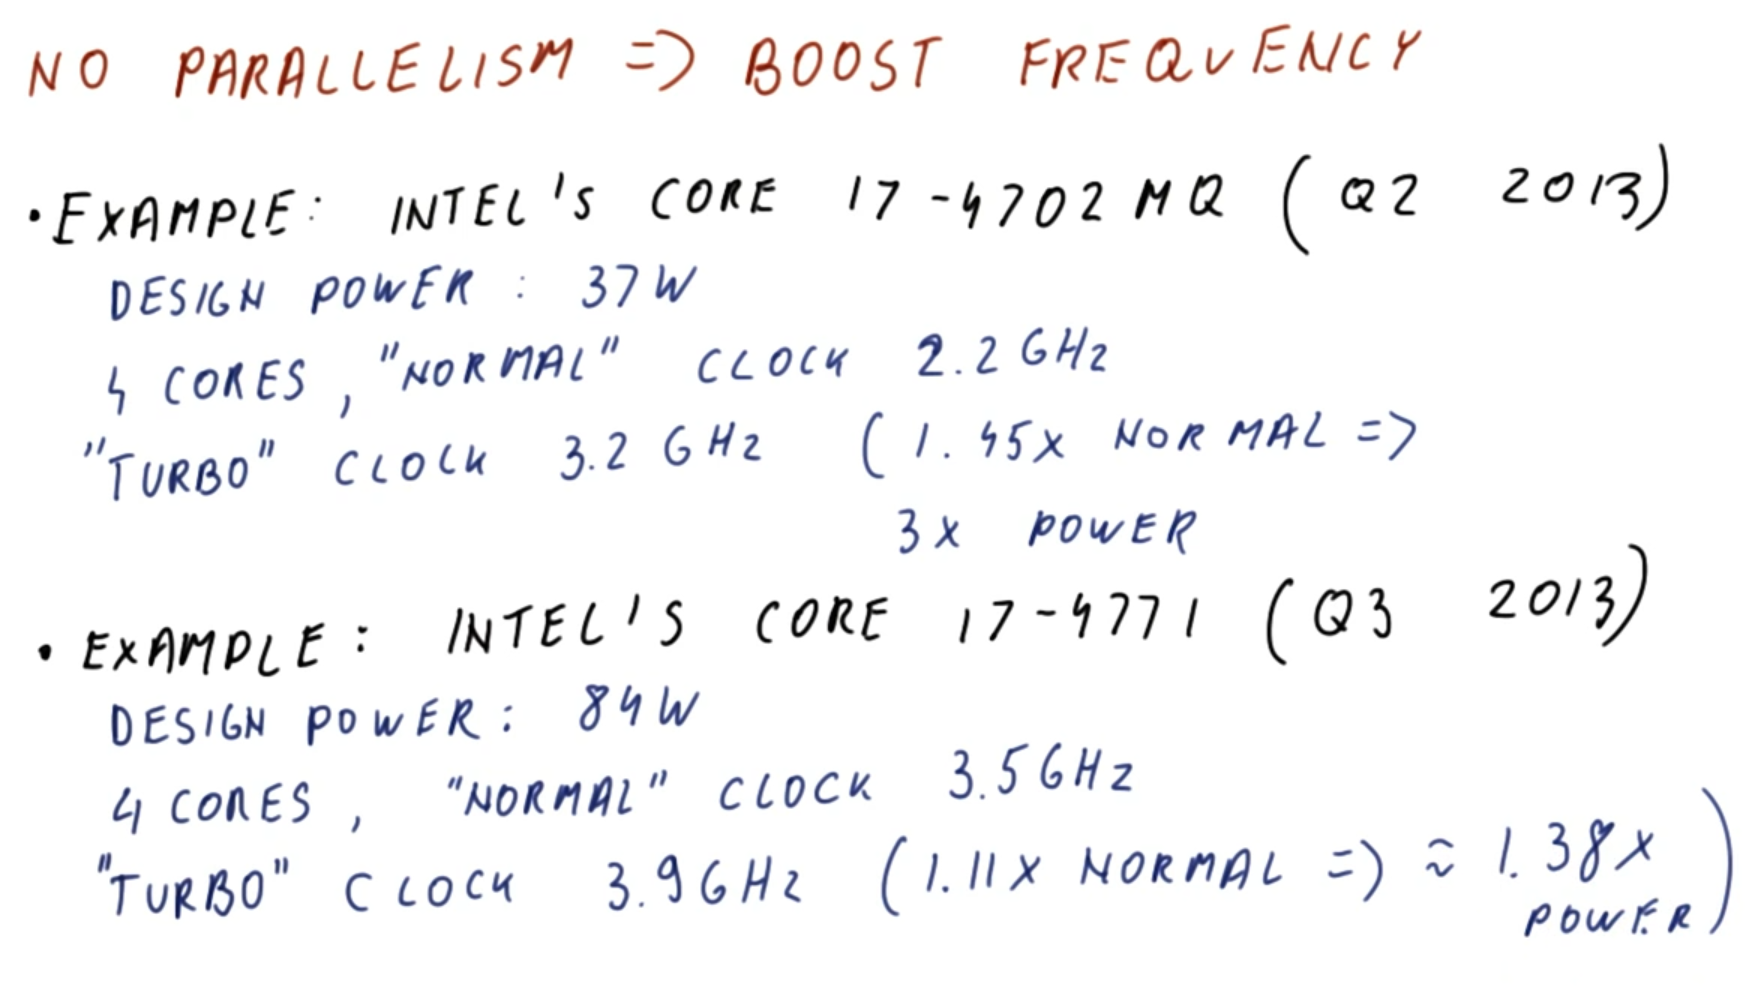 NO PARALLELISM => BOOST FREQUENCY
• EXAMPLE: INTEL'S CORE I7-4702MQ (Q2 2013)
DESIGN POWER: 37W
4 CORES, "NORMAL" CLOCK 2.2 GHz
"TURBO" CLOCK 3.2 GHz (1.45x NORMAL =>
3x POWER
• EXAMPLE: INTEL'S CORE I7-4771 (Q3 2013)
DESIGN POWER: 84W
4 CORES, "NORMAL" CLOCK 3.5GHz
"TURBO" CLOCK 3.9GHz (1.11x NORMAL =>) ≈ 1.38x
POWER)